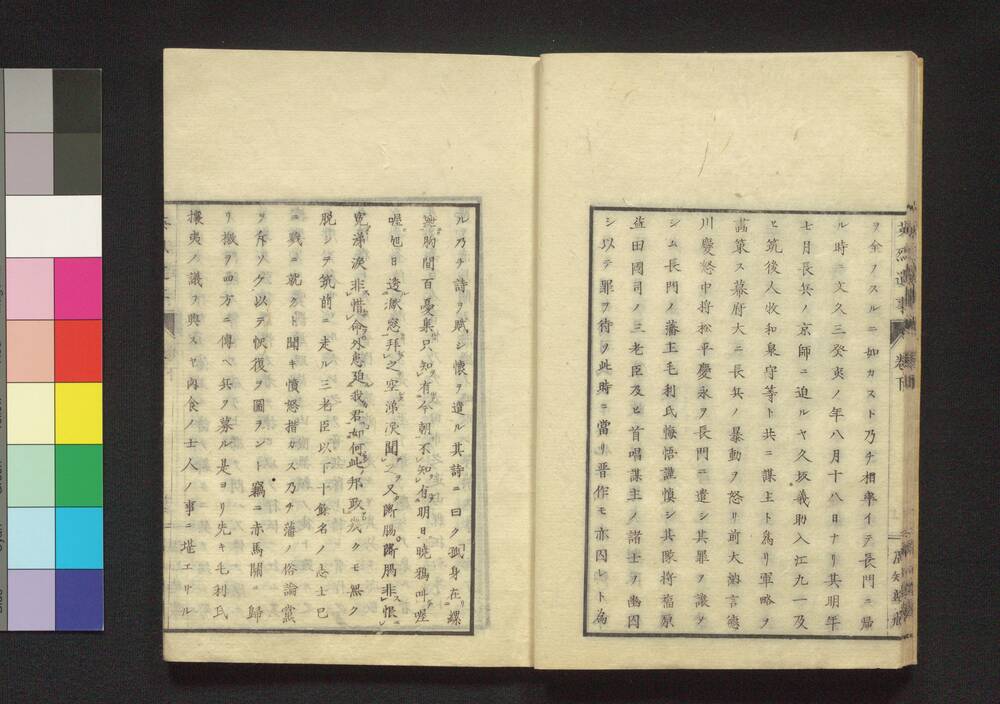 英烈遺事 卷下
ヲ全フスルニ如カスト乃チ相率イテ長門ニ歸
ル時ニ文久三癸亥ノ年八月十八日ナリ其明年
七月長兵ノ京師ニ迫ルヤ久坂義助入江九一及
ヒ筑後人牧和泉守等ト共ニ謀主ト爲リ軍略ヲ
畫策ス幕府大ニ長兵ノ暴動ヲ怒リ前大納言德
川慶恕中将松平慶永ヲ長門ニ遣シ其罪ヲ讓ヲ
シム長門ノ藩主毛利氏悔悟謹慎シ其隊將福原
益田國司ノ三老臣及ヒ首唱謀主ノ諸士ヲ幽囚
シ以テ罪ヲ待ツ此時ニ當リ晋作モ亦囚レト爲
ル乃チ詩ヲ賦シ懷ヲ遣ル其詩ニ曰ク孤身在縲
絏胸間百憂集只知有今朝不知有明日曉鴉叫喔
喔旭日透激窓拜之空涕涙聞之又斷腸斷腸非恨
寃涕涙非惜命外患迫我君如何此邦政既クモ無ク
脱シテ筑前ニ走ル三老臣以下十餘名ノ志士已
ニ戮ニ就クト聞キ憤怒措カス乃チ藩ノ俗論黨
ヲ斥ソケ以テ恢復ヲ圖ラント竊ニ赤馬關ニ歸
リ檄ヲ四方ニ傳ヘ兵ヲ募ル是ヨリ先キ毛利氏
攘夷ノ議ヲ興スヤ肉食ノ士人ノ事ニ堪エサル